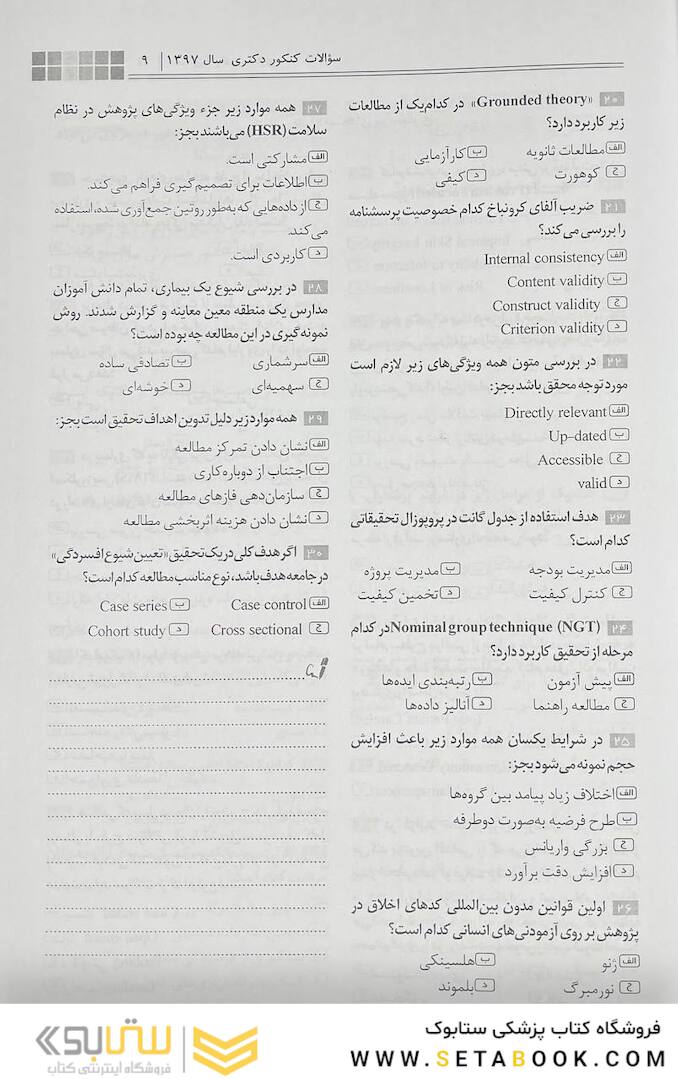 سؤالات کنکور دکتری سال ۱۳۹۷ | ۹
۲۰ «Grounded theory» در کدام‌یک از مطالعات
زیر کاربرد دارد؟
الف مطالعات ثانویه ب کارآزمایی
ج کوهورت د کیفی
۲۱ ضریب آلفای کرونباخ کدام خصوصیت پرسشنامه
را بررسی می‌کند؟
الف Internal consistency
ب Content validity
ج Construct validity
د Criterion validity
۲۲ در بررسی متون همه ویژگی‌های زیر لازم است
مورد توجه محقق باشد بجز:
الف Directly relevant
ب Up-dated
ج Accessible
د valid
۲۳ هدف استفاده از جدول گانت در پروپوزال تحقیقاتی
کدام است؟
الف مدیریت بودجه ب مدیریت پروژه
ج کنترل کیفیت د تخمین کیفیت
۲۴ Nominal group technique (NGT) در کدام
مرحله از تحقیق کاربرد دارد؟
الف پیش آزمون ب رتبه‌بندی ایده‌ها
ج مطالعه راهنما د آنالیز داده‌ها
۲۵ در شرایط یکسان همه موارد زیر باعث افزایش
حجم نمونه می‌شود بجز:
الف اختلاف زیاد پیامد بین گروه‌ها
ب طرح فرضیه به‌صورت دوطرفه
ج بزرگی واریانس
د افزایش دقت برآورد
۲۶ اولین قوانین مدون بین‌المللی کدهای اخلاق در
پژوهش بر روی آزمودنی‌های انسانی کدام است؟
الف ژنو ب هلسینکی
ج نورمبرگ د بلموند
۲۷ همه موارد زیر جزء ویژگی‌های پژوهش در نظام
سلامت (HSR) می‌باشند بجز:
الف مشارکتی است.
ب اطلاعات برای تصمیم‌گیری فراهم می‌کند.
ج از داده‌هایی که به‌طور روتین جمع‌آوری شده، استفاده
می‌کند.
د کاربردی است.
۲۸ در بررسی شیوع یک بیماری، تمام دانش آموزان
مدارس یک منطقه معین معاینه و گزارش شدند. روش
نمونه‌گیری در این مطالعه چه بوده است؟
الف سرشماری ب تصادفی ساده
ج سهمیه‌ای د خوشه‌ای
۲۹ همه موارد زیر دلیل تدوین اهداف تحقیق است بجز:
الف نشان دادن تمرکز مطالعه
ب اجتناب از دوباره‌کاری
ج سازمان‌دهی فازهای مطالعه
د نشان دادن هزینه اثربخشی مطالعه
۳۰ اگر هدف کلی در یک تحقیق «تعیین شیوع افسردگی»
در جامعه هدف باشد، نوع مناسب مطالعه کدام است؟
الف Case control ب Case series
ج Cross sectional د Cohort study
فروشگاه کتاب پزشکی ستابوک
WWW.SETABOOK.COM
ستابوک
فروشگاه اینترنتی کتاب